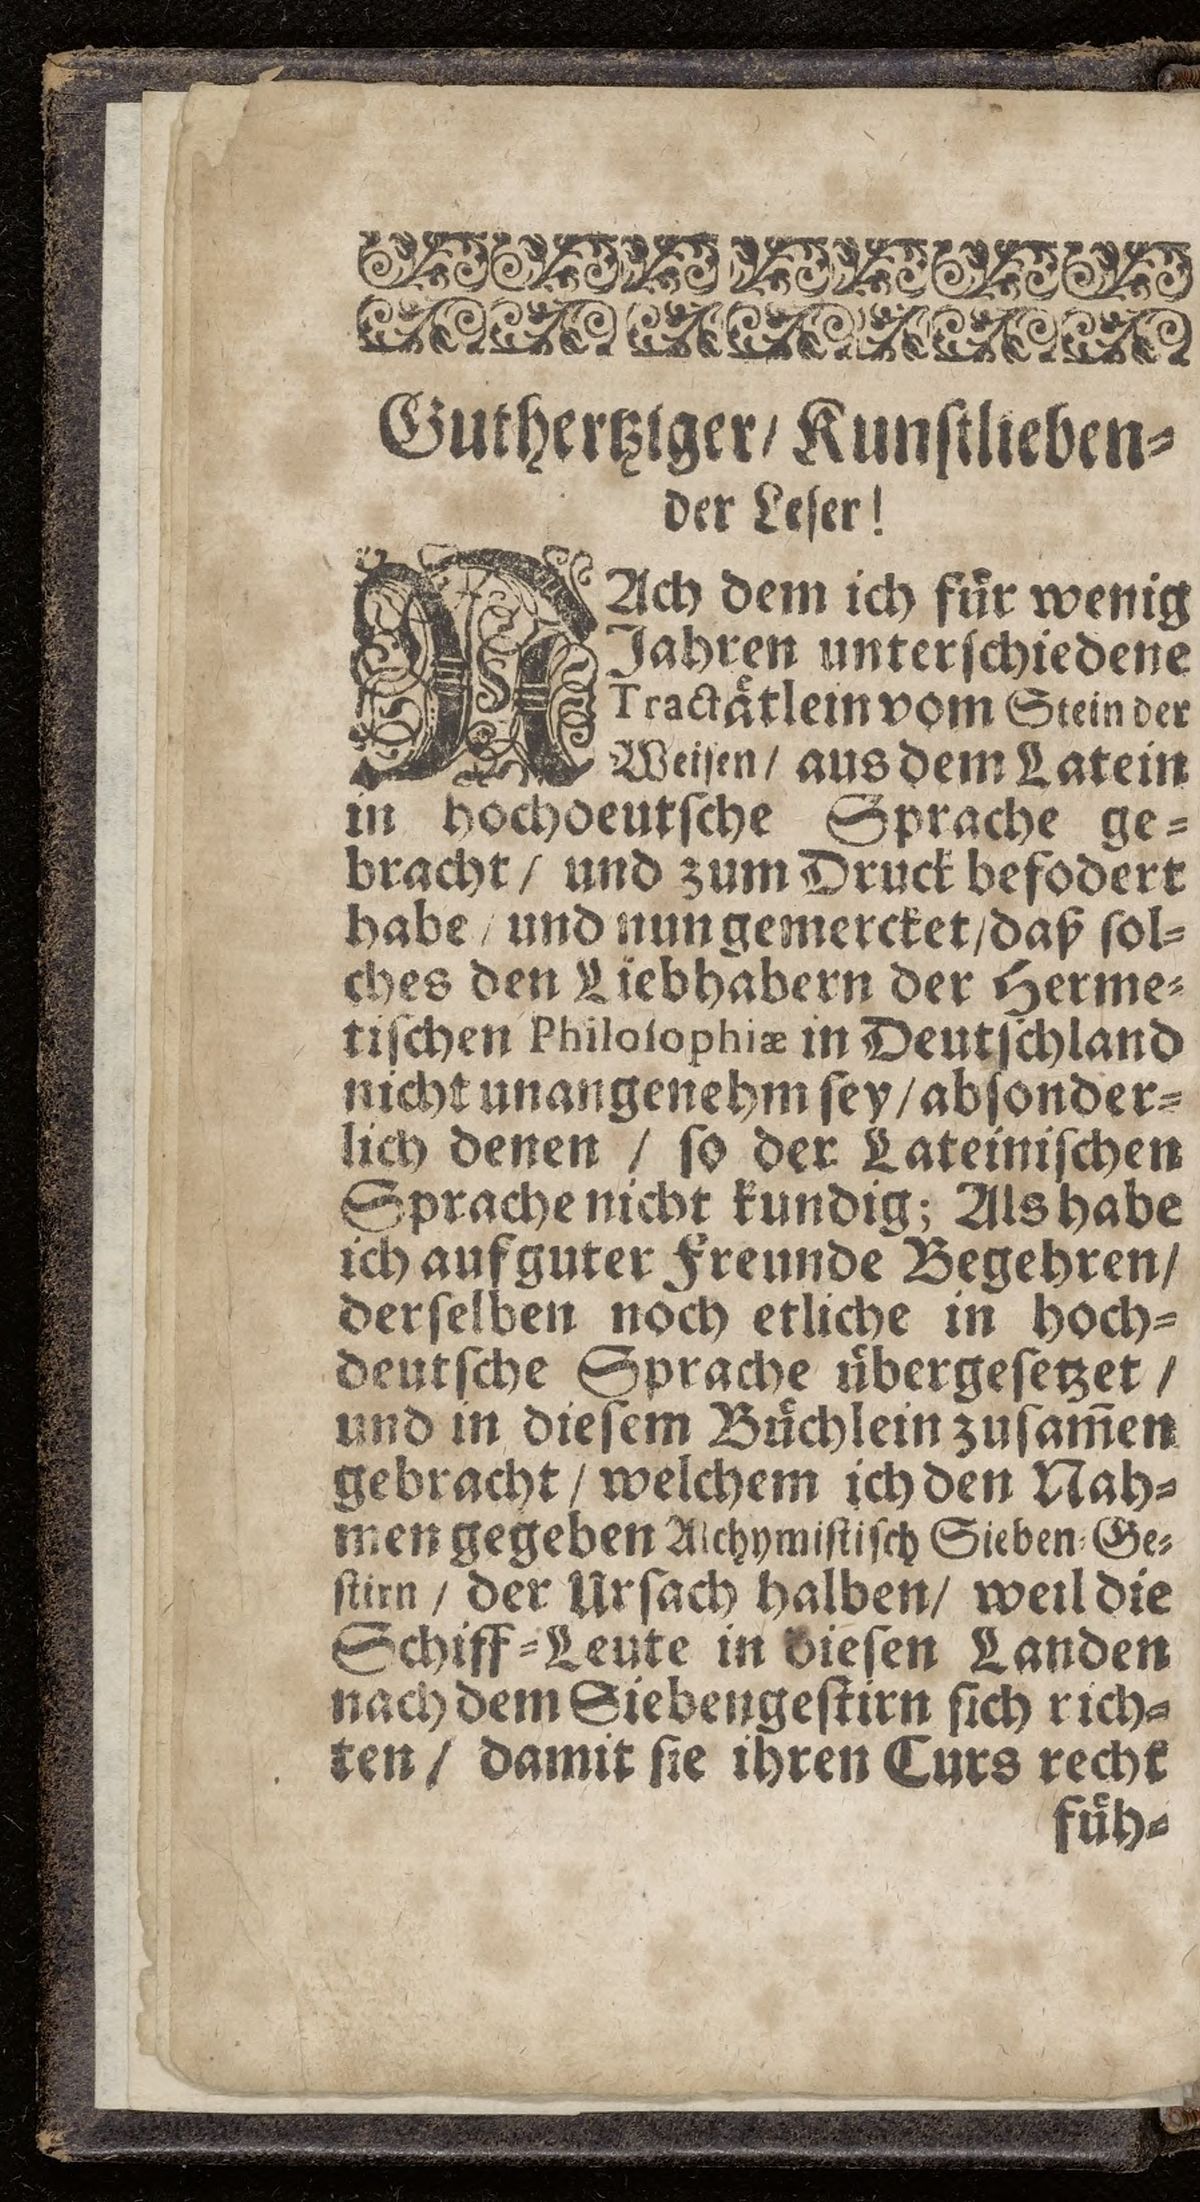 Guthertziger/ Kunstlieben⸗
der Leser!
NAch dem ich fuͤr wenig
Jahren unterschiedene
Tractaͤtlein vom Stein der
Weisen/ aus dem Latein
in hochdeutsche Sprache ge⸗
bracht/ und zum Druck befodert
habe/ und nun gemercket/daß sol⸗
ches den Liebhabern der Herme⸗
tischen Philosophiæ in Deutschland
nicht unangenehm sey/absonder⸗
lich denen / so der Lateinischen
Sprache nicht kundig; Als habe
ich auf guter Freunde Begehren/
derselben noch etliche in hoch⸗
deutsche Sprache uͤbergesetzet /
und in diesem Buͤchlein zusam̄en
gebracht/ welchem ich den Nah⸗
men gegeben Alchymistisch Sieben⸗Ge⸗
stirn / der Ursach halben/ weil die
Schiff⸗Leute in diesen Landen
nach dem Siebengestirn sich rich⸗
ten/ damit sie ihren Curs recht
fuͤh⸗